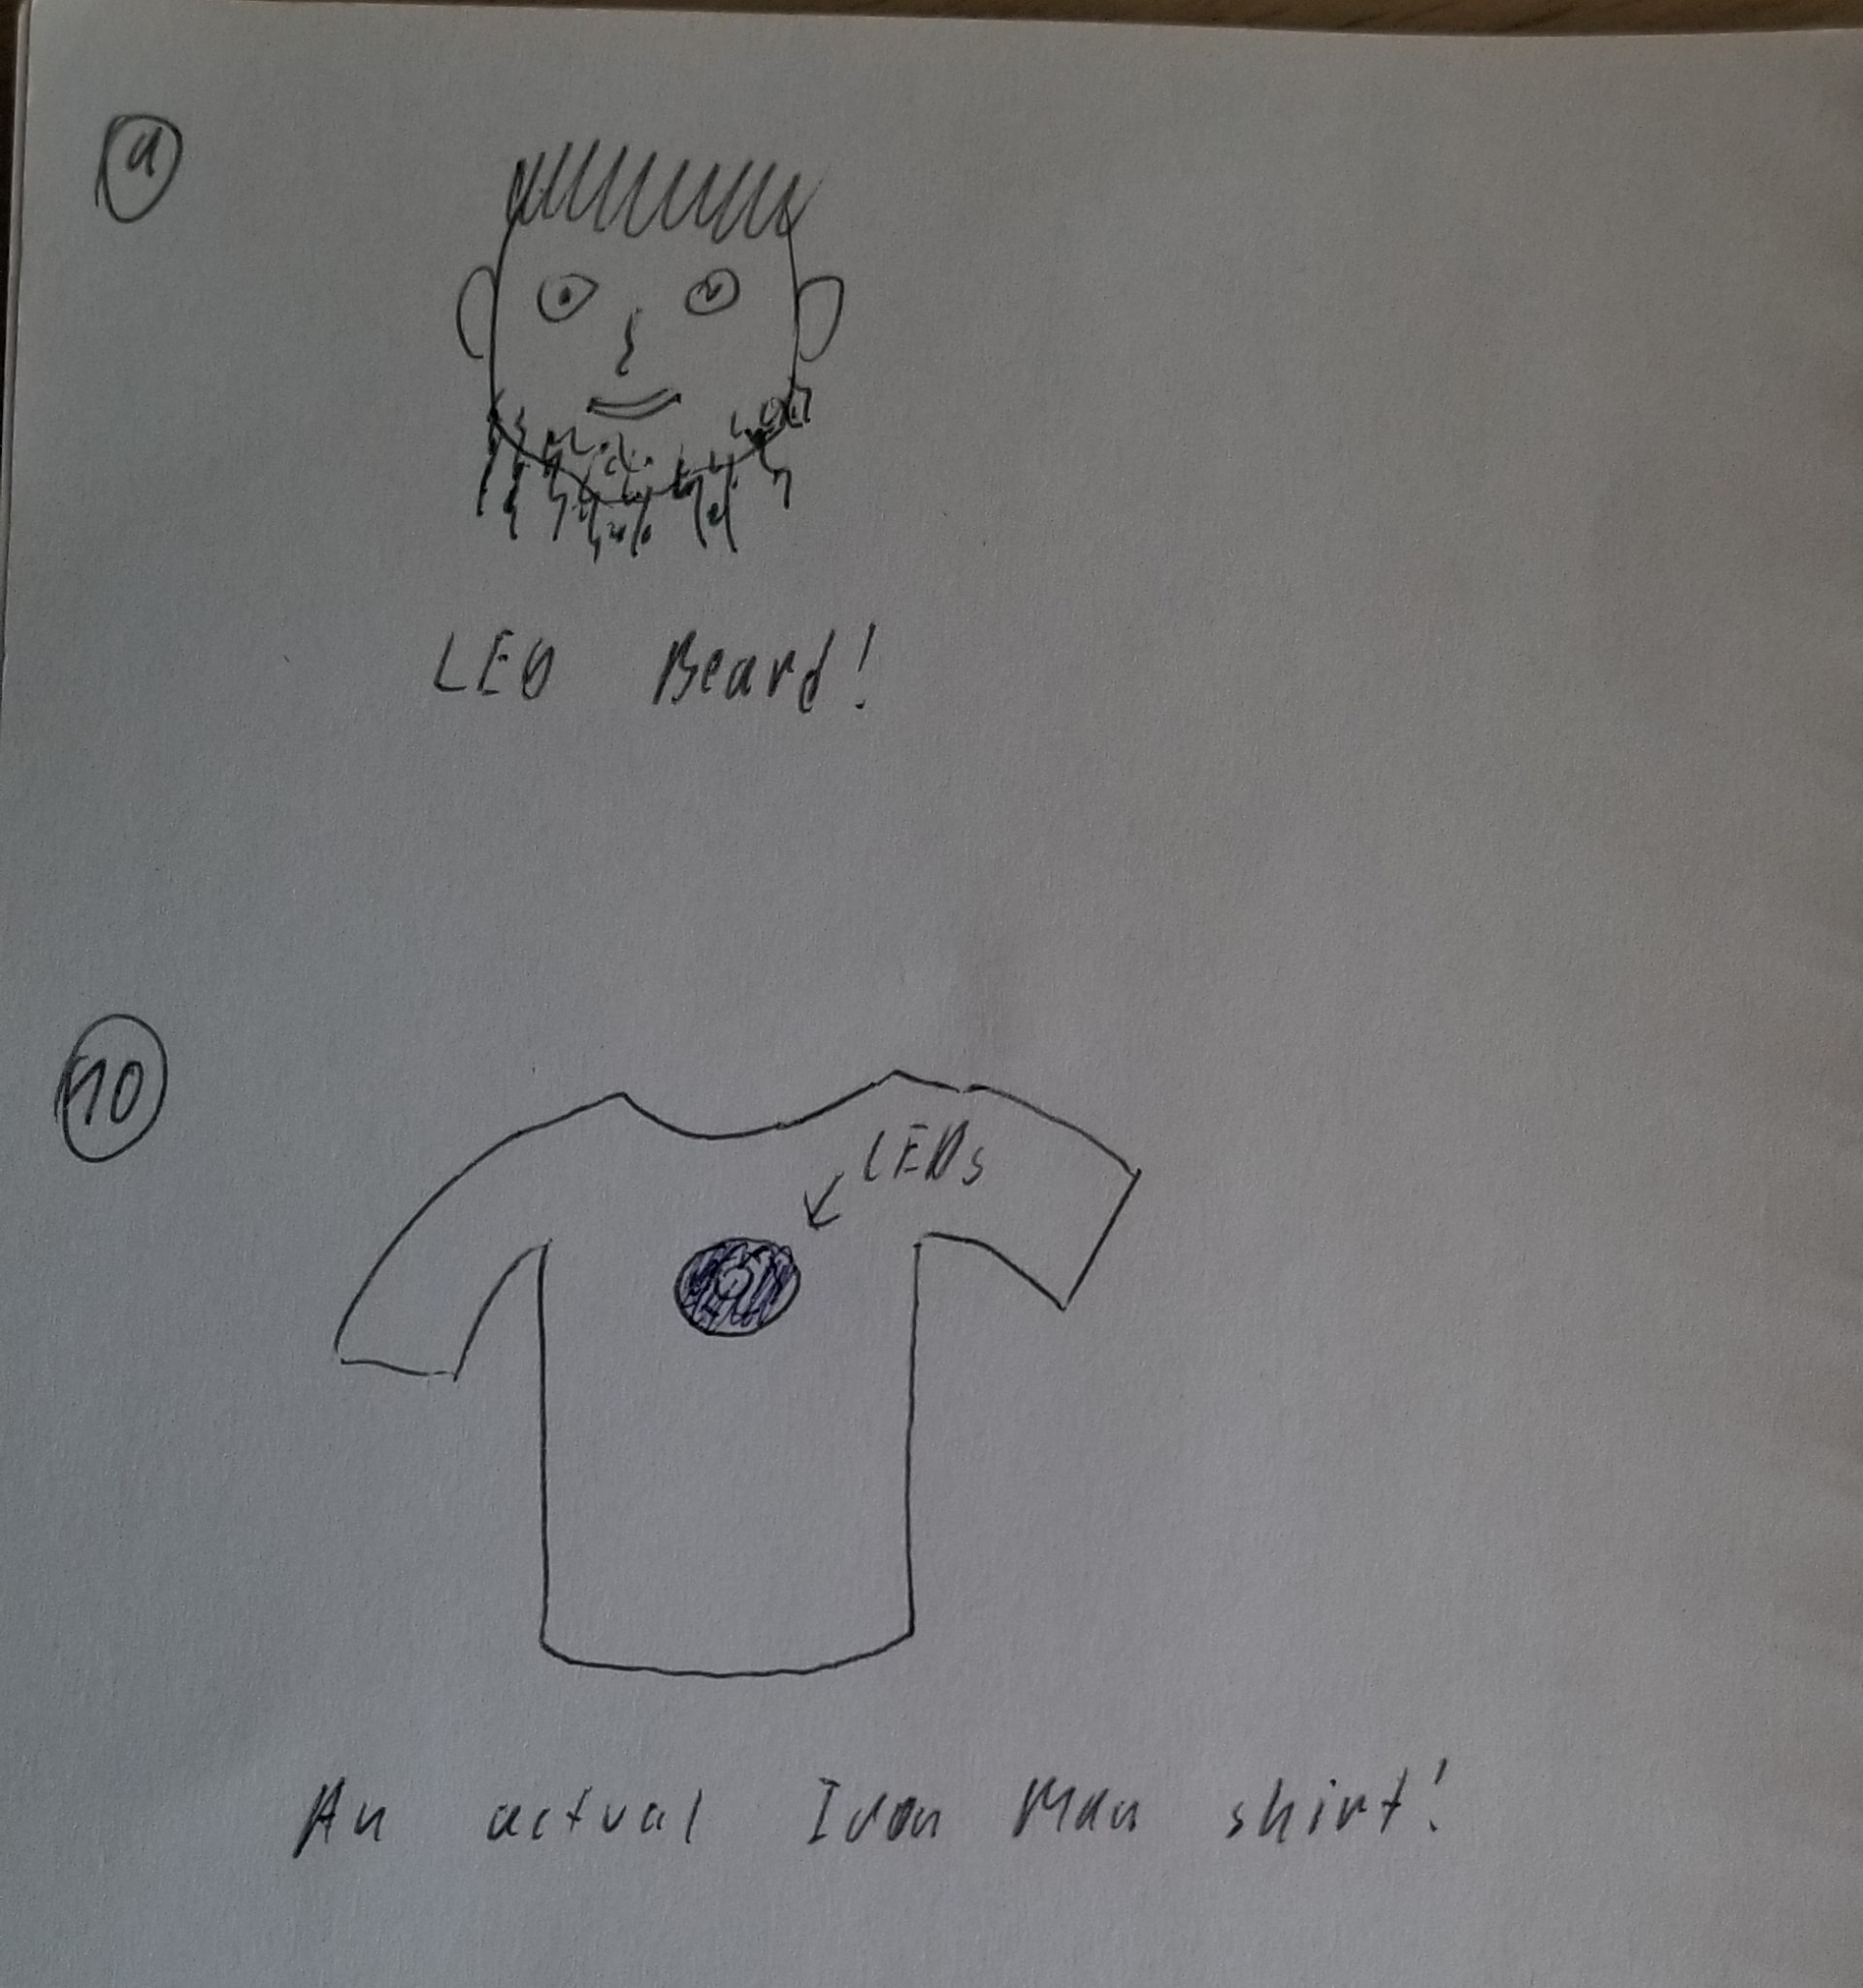 9
LED Beard!
10
LEDs
An actual Iron Man shirt!